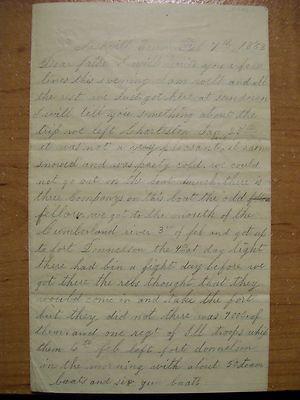 Nashvill Tenn Feb 7th, 1863
Dear father I will write you a few
lines this evening I am well and all
the rest we Just got here at sundown
I will tell you something about the
trip we left Charleston Jan 28th
it was not a very pleasant, it rain
snowed and was prety cold. we could
not go out on the boat much. there is
three companys on this boat the old
fellow. we got to the mouth of the
Cumberland river 3rd of feb and got up
to fort Donnelson the 4th at day light
there had bin a fight day before we
got there the rebs thought that they
would come in and take the fort
but they did not there was 7000 of
them. and one regt of Ill troops whip
them 5th feb left fort donnelson
in the morning with about 50 steam
boats and six gun boats